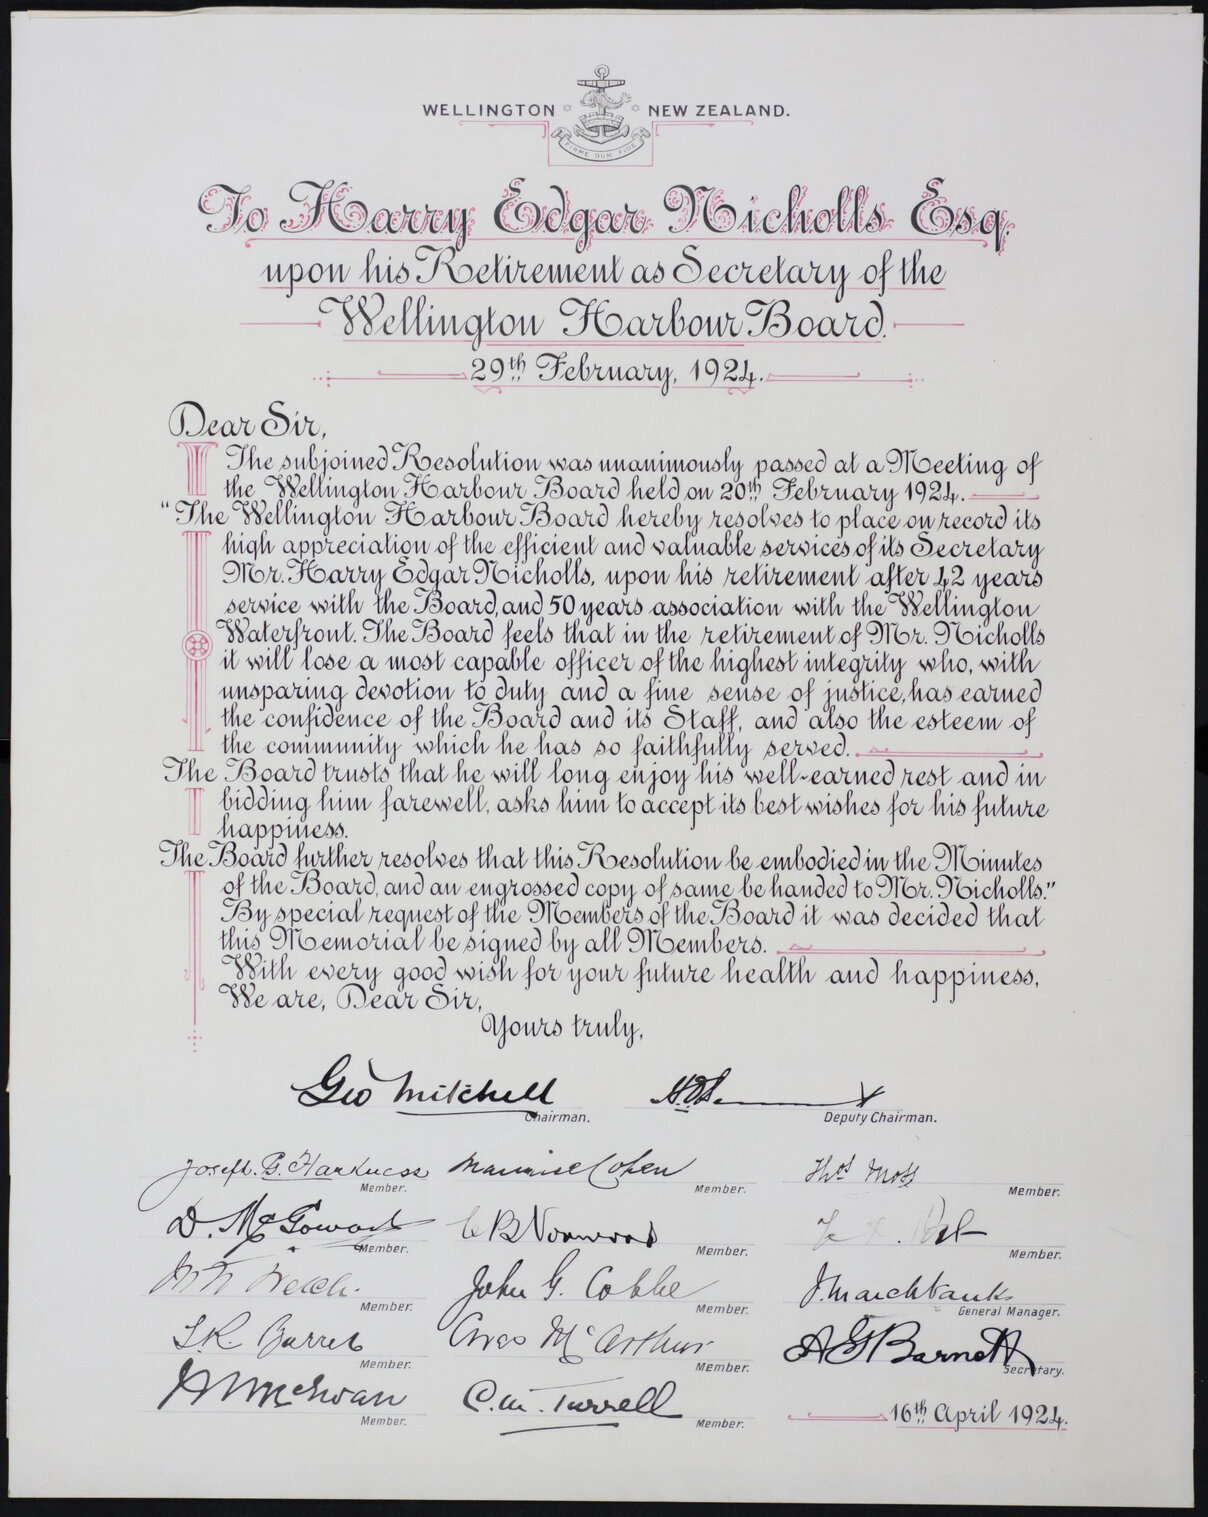 WELLINGTON NEW ZEALAND.
FIRME DUM FIDE
To Harry Edgar Nicholls Esq.
upon his Retirement as Secretary of the
Wellington Harbour Board.
29th February, 1924.
Dear Sir,
The subjoined Resolution was unanimously passed at a Meeting of
the Wellington Harbour Board held on 20th February 1924.
"The Wellington Harbour Board hereby resolves to place on record its
high appreciation of the efficient and valuable services of its Secretary
Mr. Harry Edgar Nicholls, upon his retirement after 42 years
service with the Board, and 50 years association with the Wellington
Waterfront. The Board feels that in the retirement of Mr. Nicholls
it will lose a most capable officer of the highest integrity who, with
unsparing devotion to duty and a fine sense of justice, has earned
the confidence of the Board and its Staff, and also the esteem of
the community which he has so faithfully served.
The Board trusts that he will long enjoy his well-earned rest and in
bidding him farewell, asks him to accept its best wishes for his future
happiness.
The Board further resolves that this Resolution be embodied in the Minutes
of the Board, and an engrossed copy of same be handed to Mr. Nicholls."
By special request of the Members of the Board it was decided that
this Memorial be signed by all Members.
With every good wish for your future health and happiness,
We are, Dear Sir,
Yours truly,
Geo Mitchell
Chairman. Deputy Chairman.
Joseph. B. Harkness Maurice Cohen Thos Moss
Member. Member. Member.
D. McGowan C B Norwood
Member. Member. Member.
Welch. John G. Cobbe J. Marchbanks
Member. Member. General Manager.
McArthur A G Barnett
Member. Member. Secretary.
McEwan C. M. Turrell
Member. Member. 16th April 1924.